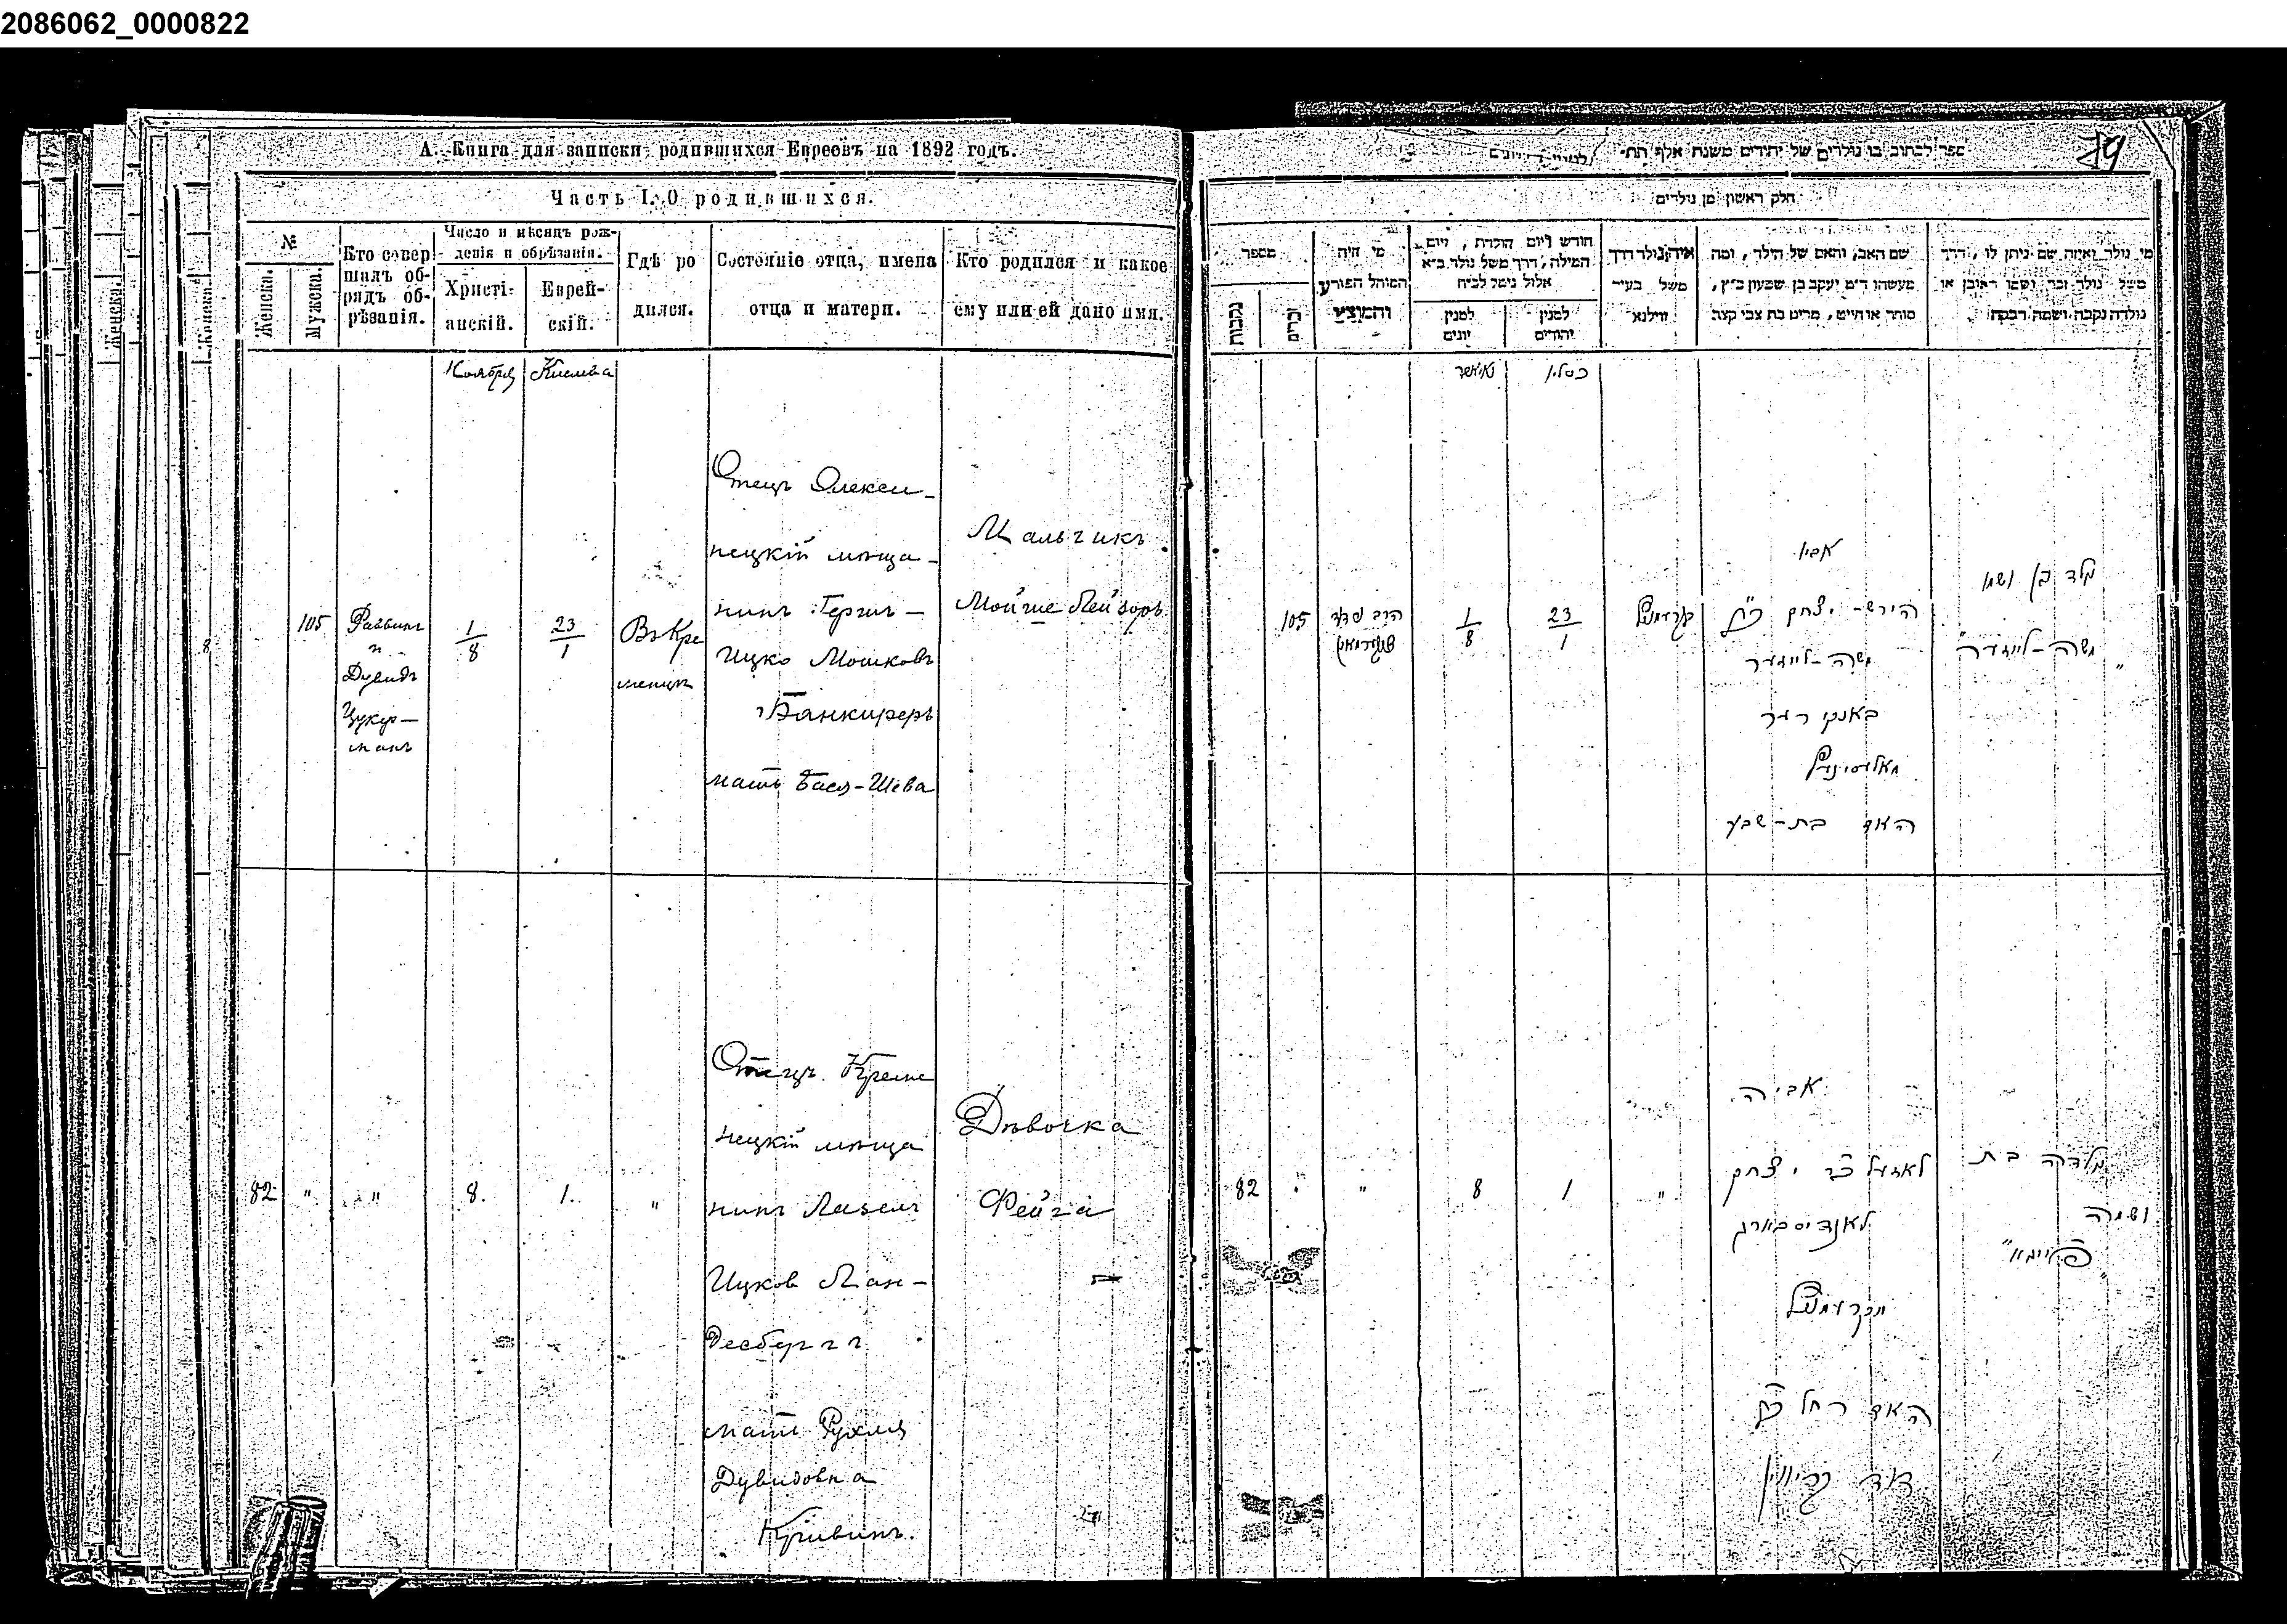 2086062_0000822
А. Книга для записки родившихся Евреевъ на 1892 годъ.
Часть I. О родившихся.
№
Женска.
Мужска.
Кто совер
шалъ об-
рядъ об-
рѣзанія.
Число и мѣсяцъ рож-
денія и обрѣзанія.
Христі-
анскій.
Еврей-
скій.
Гдѣ ро
дился.
Состояніе отца, имена
отца и матери.
Кто родился и какое
ему или ей дано имя.
Ноября
Кислева
105
Раввинъ
и
Дувидъ
Цукер—
манъ
1
8
23
1
Въ Кре
менцѣ
Отецъ Олекси-
нецкій мѣща-
нинъ Герш—
Ицко Мошковъ
Банкиреръ
мать Бася-Шева
Мальчикъ
Мойше Лейзоръ
82
"
"
8.
1.
"
Отецъ Креме
нецкій мѣща
нинъ Лазель
Ицков Лан-
десбергъ
мать Рухля
Дувидовна
Кривинъ.
Дѣвочка
Фейга
ספר לכתוב בו נולדים של יהודים משנת אלף תת"
79
חלק ראשון מן נולדים
מספר
נקבות
זכרים
מי היה
המוהל הפורע
והמוצץ
חודש ויום הולדת, ויום
המילה, דרך משל נולד כ"א
אלול נימל לכ"ח
למנין
יונים
למנין
יהודים
איה נולד דרך
משל בעיר
ווילנא
שם האב, והאם של הילד, ומה
מעשהו ד"מ יעקב בן שמעון כ"ץ,
סוחר או חייט, מרים בת צבי קצב
מי נולד ואיזה שם ניתן לו, דרך
משל נולד זכר ושמו ראובן או
נולדה נקבה ושמה רבקה
כסליו
105
הרב ודוד
צוקערמאן
1
8
23
1
קרעמניץ
אביו
הירש-יצחק בן
משה-לייזער
באנקירער
האם בת-שבע
נולד בן ושמו
"משה-לייזער"
82
"
"
8
1
"
אביה
לאזעל בר יצחק
לאנדיסבארג
מקרעמניץ
האם רחל בת
דוד קריווין
נולדה בת
ושמה
"פייגא"